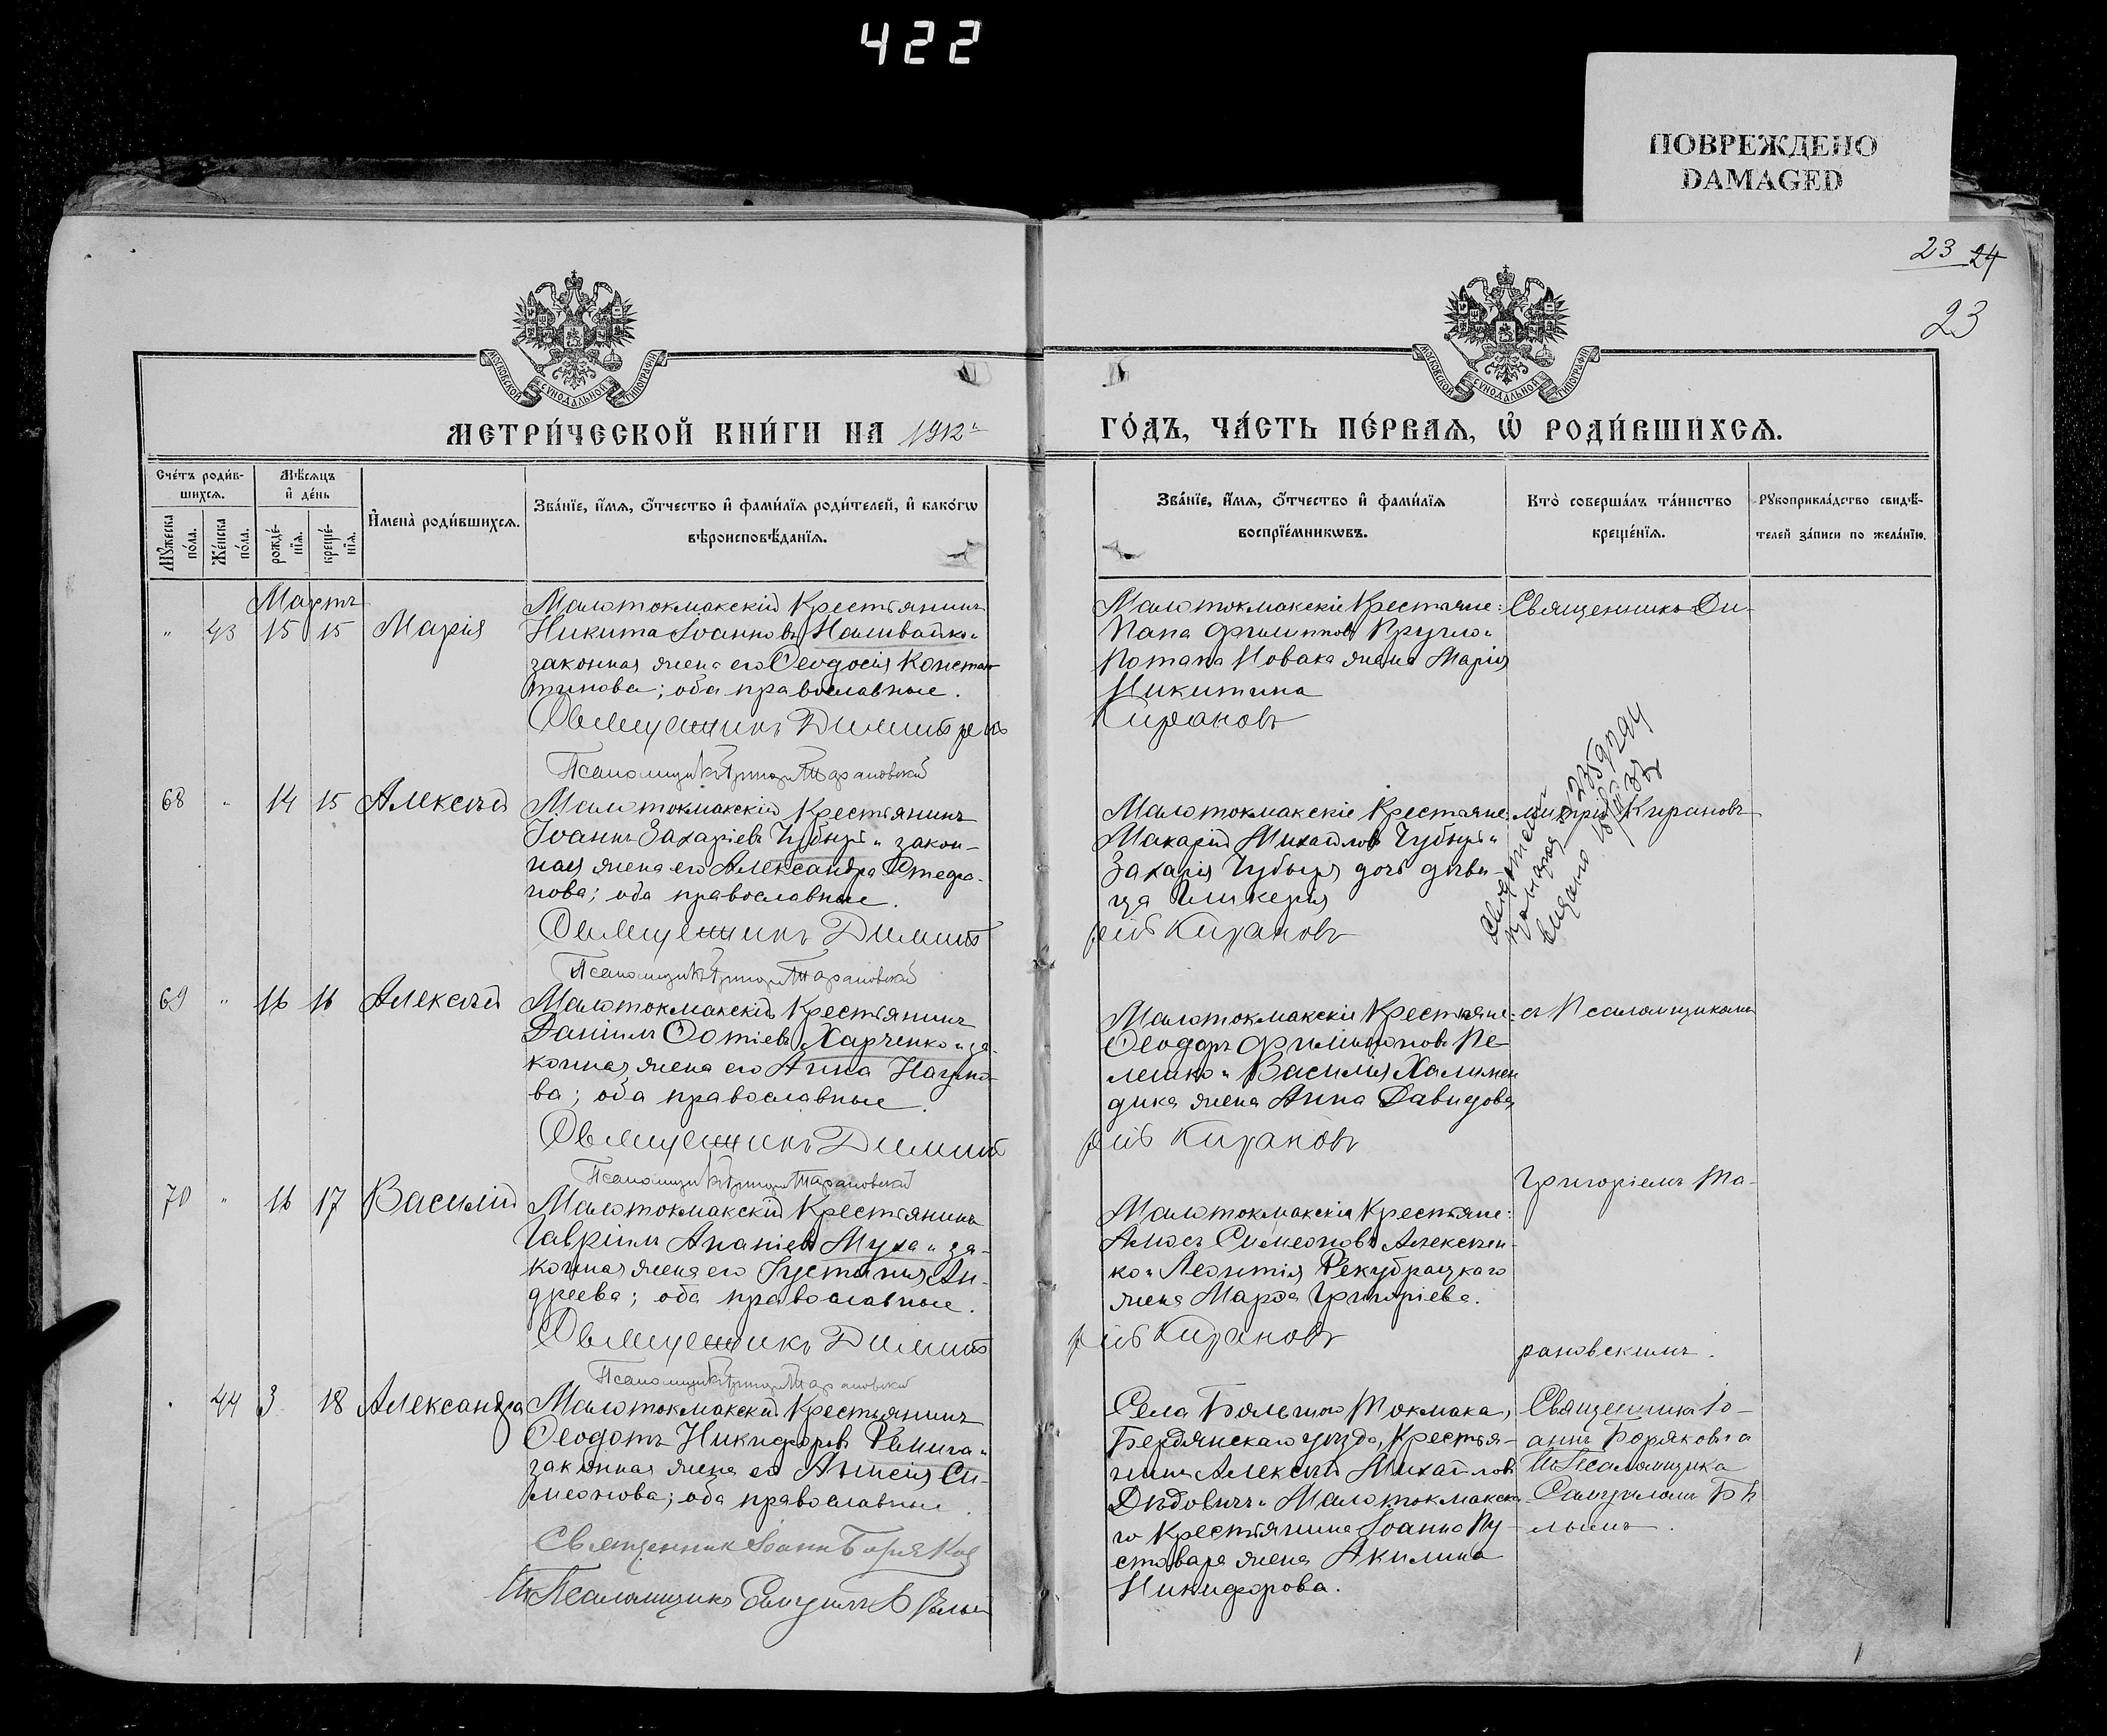 422
ПОВРЕЖДЕНО
DAMAGED
23 24
23
МОСКОВСКОЙ СѴНОДАЛЬНОЙ ТИПОГРАФІИ
МОСКОВСКОЙ СѴНОДАЛЬНОЙ ТИПОГРАФІИ
МЕТРИ́ЧЕСКОЙ КНИ́ГИ НА 1912й
ГО́ДЪ, ЧА́СТЬ ПЕ́РВАѦ, Ѡ҆ РОДИ́ВШИХСѦ.
Сче́тъ роди́в-
шихсѧ.
Мꙋ́жеска по́ла.
Же́нска по́ла.
Мѣ́сѧцъ
и҆ де́нь
рожде́-
нїѧ.
креще́-
нїѧ.
И҆мена̀ роди́вшихсѧ.
Зва́нїе, и҆́мѧ, ѻ҆́тчество и҆ фами́лїѧ роди́телей, и҆ како́гѡ
вѣроисповѣ́данїѧ.
Зва́нїе, и҆́мѧ, ѻ҆́тчество и҆ фами́лїѧ
воспрїе́мникѡвъ.
Кто̀ соверша́лъ та́инство
креще́нїѧ.
Рꙋкоприкла́дство свидѣ́-
телей за́писи по жела́нїю.
Мартъ
" 43 15 15 Марія
Малотокмакскій Крестьянинъ
Никита Іоанновъ Наливайко и
законная жена его Ѳеодосія Констан
тинова; оба православные.
Священникъ Димитрій
Псаломщикъ Григорій Тарановскій
Малотокмакскіе Крестьяне:
Филипповъ Кругло и
Потапа Новака жена Марія
Никитина
Кирановъ
Священникъ Ди-
68 " 14 15 Алексѣй
Малотокмакскій Крестьянинъ
Іоаннъ Захаріевъ Чубырь и закон-
ная жена его Александра Стефа-
нова; оба православные.
Священникъ Димит
Псаломщикъ Григорій Тарановскій
Малотокмакскіе Крестьяне:
Макарій Михайловъ Чубырь и
Захарія Чубыря дочь дѣви-
ца Гликерія
рій Кирановъ
митрій Кирановъ
выдано
69 " 16 16 Алексѣй
Малотокмакскій Крестьянинъ
Даніилъ Фотіевъ Харченко и за-
конная жена его Анна Наумо-
ва; оба православные.
Священникъ Димит
Псаломщикъ Григорій Тарановскій
Малотокмакскіе Крестьяне:
Ѳеодоръ Филимоновъ Пе-
лешко и Василія Халимен
дика жена Анна Давидова
рій Кирановъ
съ Псаломщикомъ
70 " 16 17 Василій
Малотокмакскій Крестьянинъ
Гавріилъ Ананіевъ Муха и за-
конная жена его Іустинія Ан-
дреева; оба православные.
Священникъ Димит
Псаломщикъ Григорій Тарановскій
Малотокмакскіе Крестьяне:
Амосъ Симеоновъ Алексѣен-
ко и Леонтія Рекубрацкаго
жена Марѳа Григоріева.
рій Кирановъ
Григоріемъ Та-
рановскимъ.
" 44 3 18 Александра
Малотокмакскій Крестьянинъ
Ѳеодотъ Никифоровъ и
законная жена его Анисія Си-
меонова; оба православные.
Священник Іоанн Боряков
И. Псаломщикъ Самуилъ Бѣлый
Села Большого Токмака,
Бердянскаго уѣзда, Крестья-
нинъ Алексѣй Михайловъ
Дѣдовичъ и Малотокмакска
го Крестьянина Іоанна Пу-
стовара жена Акилина
Никифорова.
Священникъ Іо-
аннъ Боряковъ и
И. Псаломщика
Самуиломъ Бѣ
лымъ.